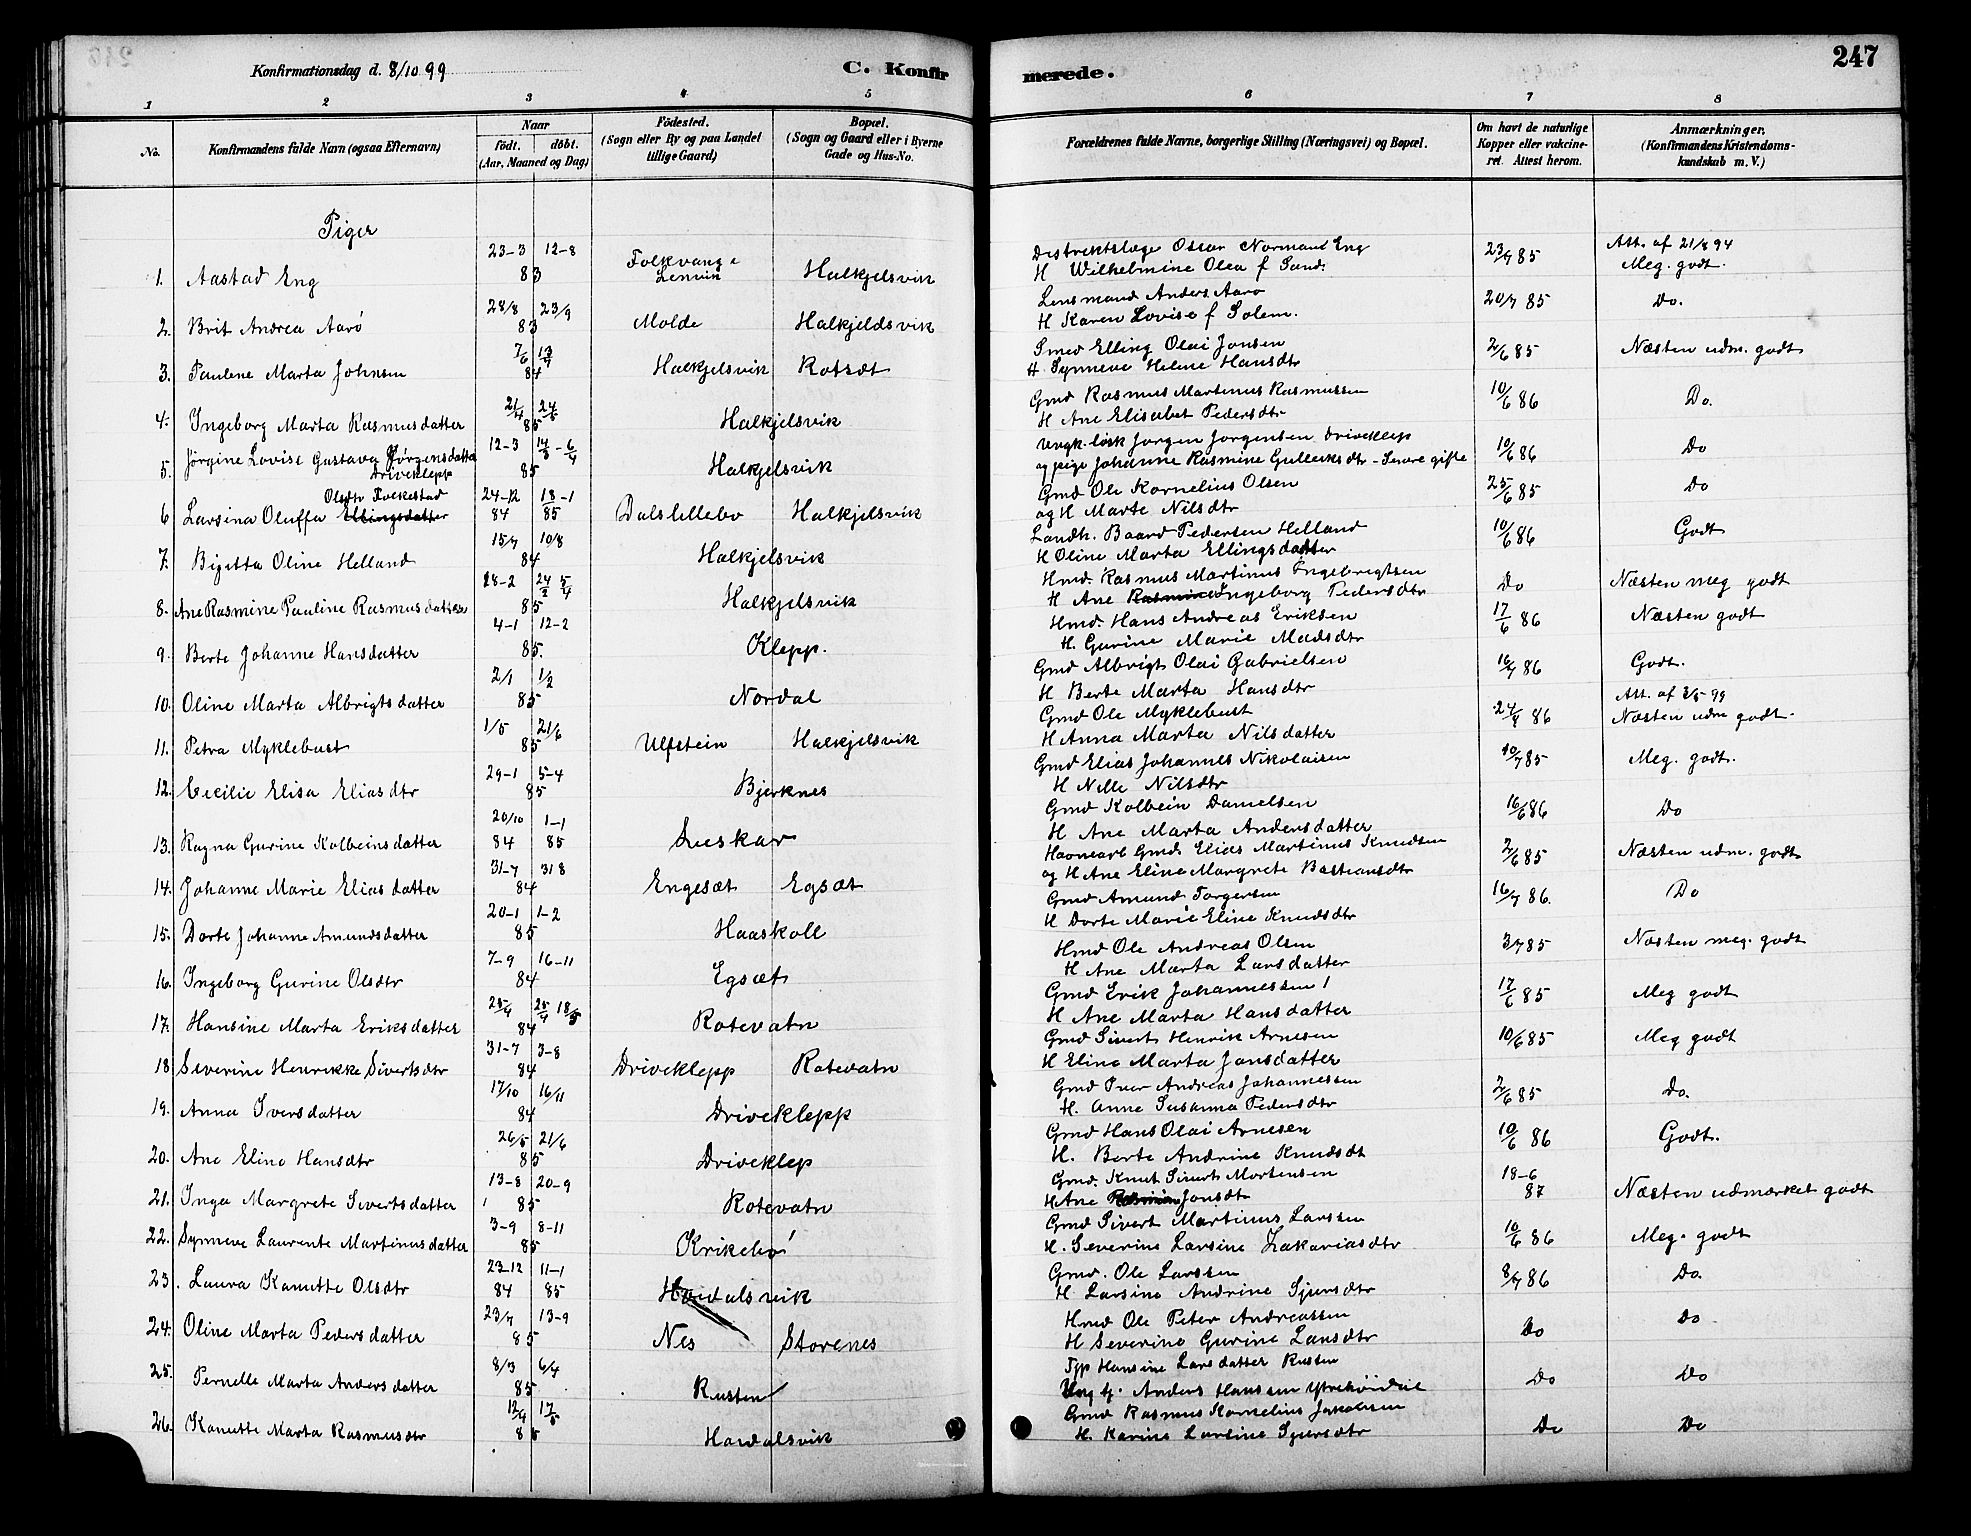 247
Konfirmationsdag d. 8/10 99
C. Konfirmerede.
1 2 3 4 5 6 7 8
No. Konfirmandens fulde Navn (ogsaa Efternavn) Naar født. døbt. (Aar, Maaned og Dag) Fødested. (Sogn eller By og paa Landet tillige Gaard) Bopæl. (Sogn og Gaard eller i Byerne Gade og Hus-No. Forældrenes fulde Navne, borgerlige Stilling (Næringsvei) og Bopæl. Om havt de naturlige Kopper eller vakcineret. Attest herom. Anmærkninger. (Konfirmandens Kristendomskundskab m. V.)
Piger
1. Aastad Eng 23-3 12-8 83 Folkvang i Lenvik Halkjelsvik Distriktslæge Oscar Normand Eng H Wilhelmine Olea f Sand. 23/7 85 Att. af 21/8 94 Meg. godt.
2. Brit Andrea Aarö 28/8 23/9 83 Molde Halkjeldsvik Lensmand Anders Aarö H Karen Lovise f Solem. 20/7 85 Do.
3. Pauline Marta Johnsen 7/6 13/7 84 Halkjelsvik Rotsæt Smed Elling Olai Jonsen H Synneve Helene Hansdtr 2/6 85 Næsten udm. godt
4. Ingeborg Marta Rasmusdatter 21/4 24/5 85 Halkjelsvik Gmd Rasmus Martenus Rasmussen H Ane Elisabet Pedersdtr 10/6 86 Do.
5. Jörgine Lovise Gustava Jörgensdatter Driveklepp 12-3 14/3 - 6/4 85 Halkjelsvik Ungk. Jørgen Jorgensen Driveklep og pige Johanne Rasmine Gulleiksdtr - Senere gifte 10/6 86 Do
6 Larsina Oluffa Ellingsdatter Olsdtr Folkestad 24-12 84 18-1 85 Dalslillebø Halkjelsvik Gmd Ole Kornelius Olsen og H Marte Nilsdtr 25/6 85 Do
7. Bigitta Oline Helland 15/7 10/8 84 Halkjelsvik Landh. Baard Pedersen Helland H Oline Marta Ellingsdatter 10/6 86 Godt
8. Ane Rasmine Pauline Rasmusdatter 18-2 24/2 5/4 85 Halkjelsvik Hmd. Rasmus Martinus Ingebrigtsen H Ane Rasmine Ingeborg Pedersdtr Do Næsten meg godt
9. Berte Johanne Hansdatter 4-1 12-2 85. Klepp. Hmd. Hans Andreas Eriksen H. Gurine Marie Madsdtr 17/6 86 Næsten godt
10. Oline Marta Albrigtsdatter 2/1 1/2 85 Nordal Gmd Albrigt Olai Gabrielsen H Berte Marta Hansdtr 16/7 86 Godt.
11. Petra Myklebust 1/5 21/6 85 Ulfstein Halkjelsvik Gmd Ole Myklebust H Anna Marta Nilsdatter 24/9 86 Att. af 3/5 99 Næsten udm godt.
12. Cecilie Elisa Eliasdtr 29-1 5-4 85 Bjerknes Gmd Elias Johannes Nikolaisen H Nille Nilsdtr 10/7 85 Meg. godt.
13. Ragna Gurine Kolbeinsdatter 20/10 84 1-1 85 Leeskar Gmd Kolbein Danielsen H Ane Marta Andersdatter 16/6 86 Do
14. Johanne Marie Eliasdatter 31-7 31 8 84 Engesæt Egsæt Havnearb Gmd. Elias Martinus Knudsen og H Ane Eline Margrete Bastiansdtr 2/6 85 Næsten udm. godt
15. Dorte Johanne Amundsdatter 20-1 1-2 85 Haaskoll Gmd Amund Torgersen H Dorte Marie Eline Knudsdtr 16/7 86. Do
16. Ingeborg Gurine Olsdtr 7-9 16-11 84 Egsæt Hmd Ole Andreas Olsen H Ane Marta Larsdatter 3/7 85 Næsten meg. godt
17. Hansine Marta Eriksdatter 25/4 25/4 18/5 84 Rotevatn Gmd Erik Johannessen H Ane Marta Hansdatter 17/6 85 Meg godt
18 Severine Henrikke Sivertsdtr 31-7 3-8 84 Driveklepp Rotevatn Gmd Sivert Henrik Arnesen H Eline Marta Jonsdatter 10/6 85 Meg godt
19. Anna Iversdatter 17/10 16/11 84 Driveklepp Gmd Iver Andreas Johannessen H. Anne Susanna Pedersdtr 2/6 85 Do.
20. Ane Eline Hansdtr 26/5 21/6 85 Driveklep Gmd Hans Olai Arnesen H. Berte Andrine Knudsdt 10/6 86 Godt.
21. Inga Margrete Sivertsdatter 13-8 20-9 85 Rotevatn Gmd. Knut Sivert Mortensen H Ane Rasmine Jonsdtr 18-6 87 Næsten udmærket godt
22. Synneve Laurente Martinusdatter 3-9 8-11 85 Krikebø Gmd Sivert Martinus Larssen H. Severine Larsine Zakariasdtr 10/6 86 Meg. godt
23. Laura Kanutte Olsdtr 23-12 84 11-1 85 Hovdalsvik Gmd. Ole Larssen H. Larsine Andrine Sjursdtr 8/7 86 Do.
24. Oline Marta Pedersdatter 23/7 13-9 85 Nes Storenes Hmd Ole Peter Andreassen H Severine Gurine Larsdtr Do Do
25. Pernelle Marta Andersdatter 8/3 6/4 85 Rusten Tjp Hansine Larsdatter Rusten Ung kj. Anders Hanssen Do Do
26. Kanutte Marta Rasmusdtr 12/4 17/5 85 Hovdalsvik Gmd Rasmus Kornelius Jakobsen H. Karine Larsine Sjursdtr Do Do